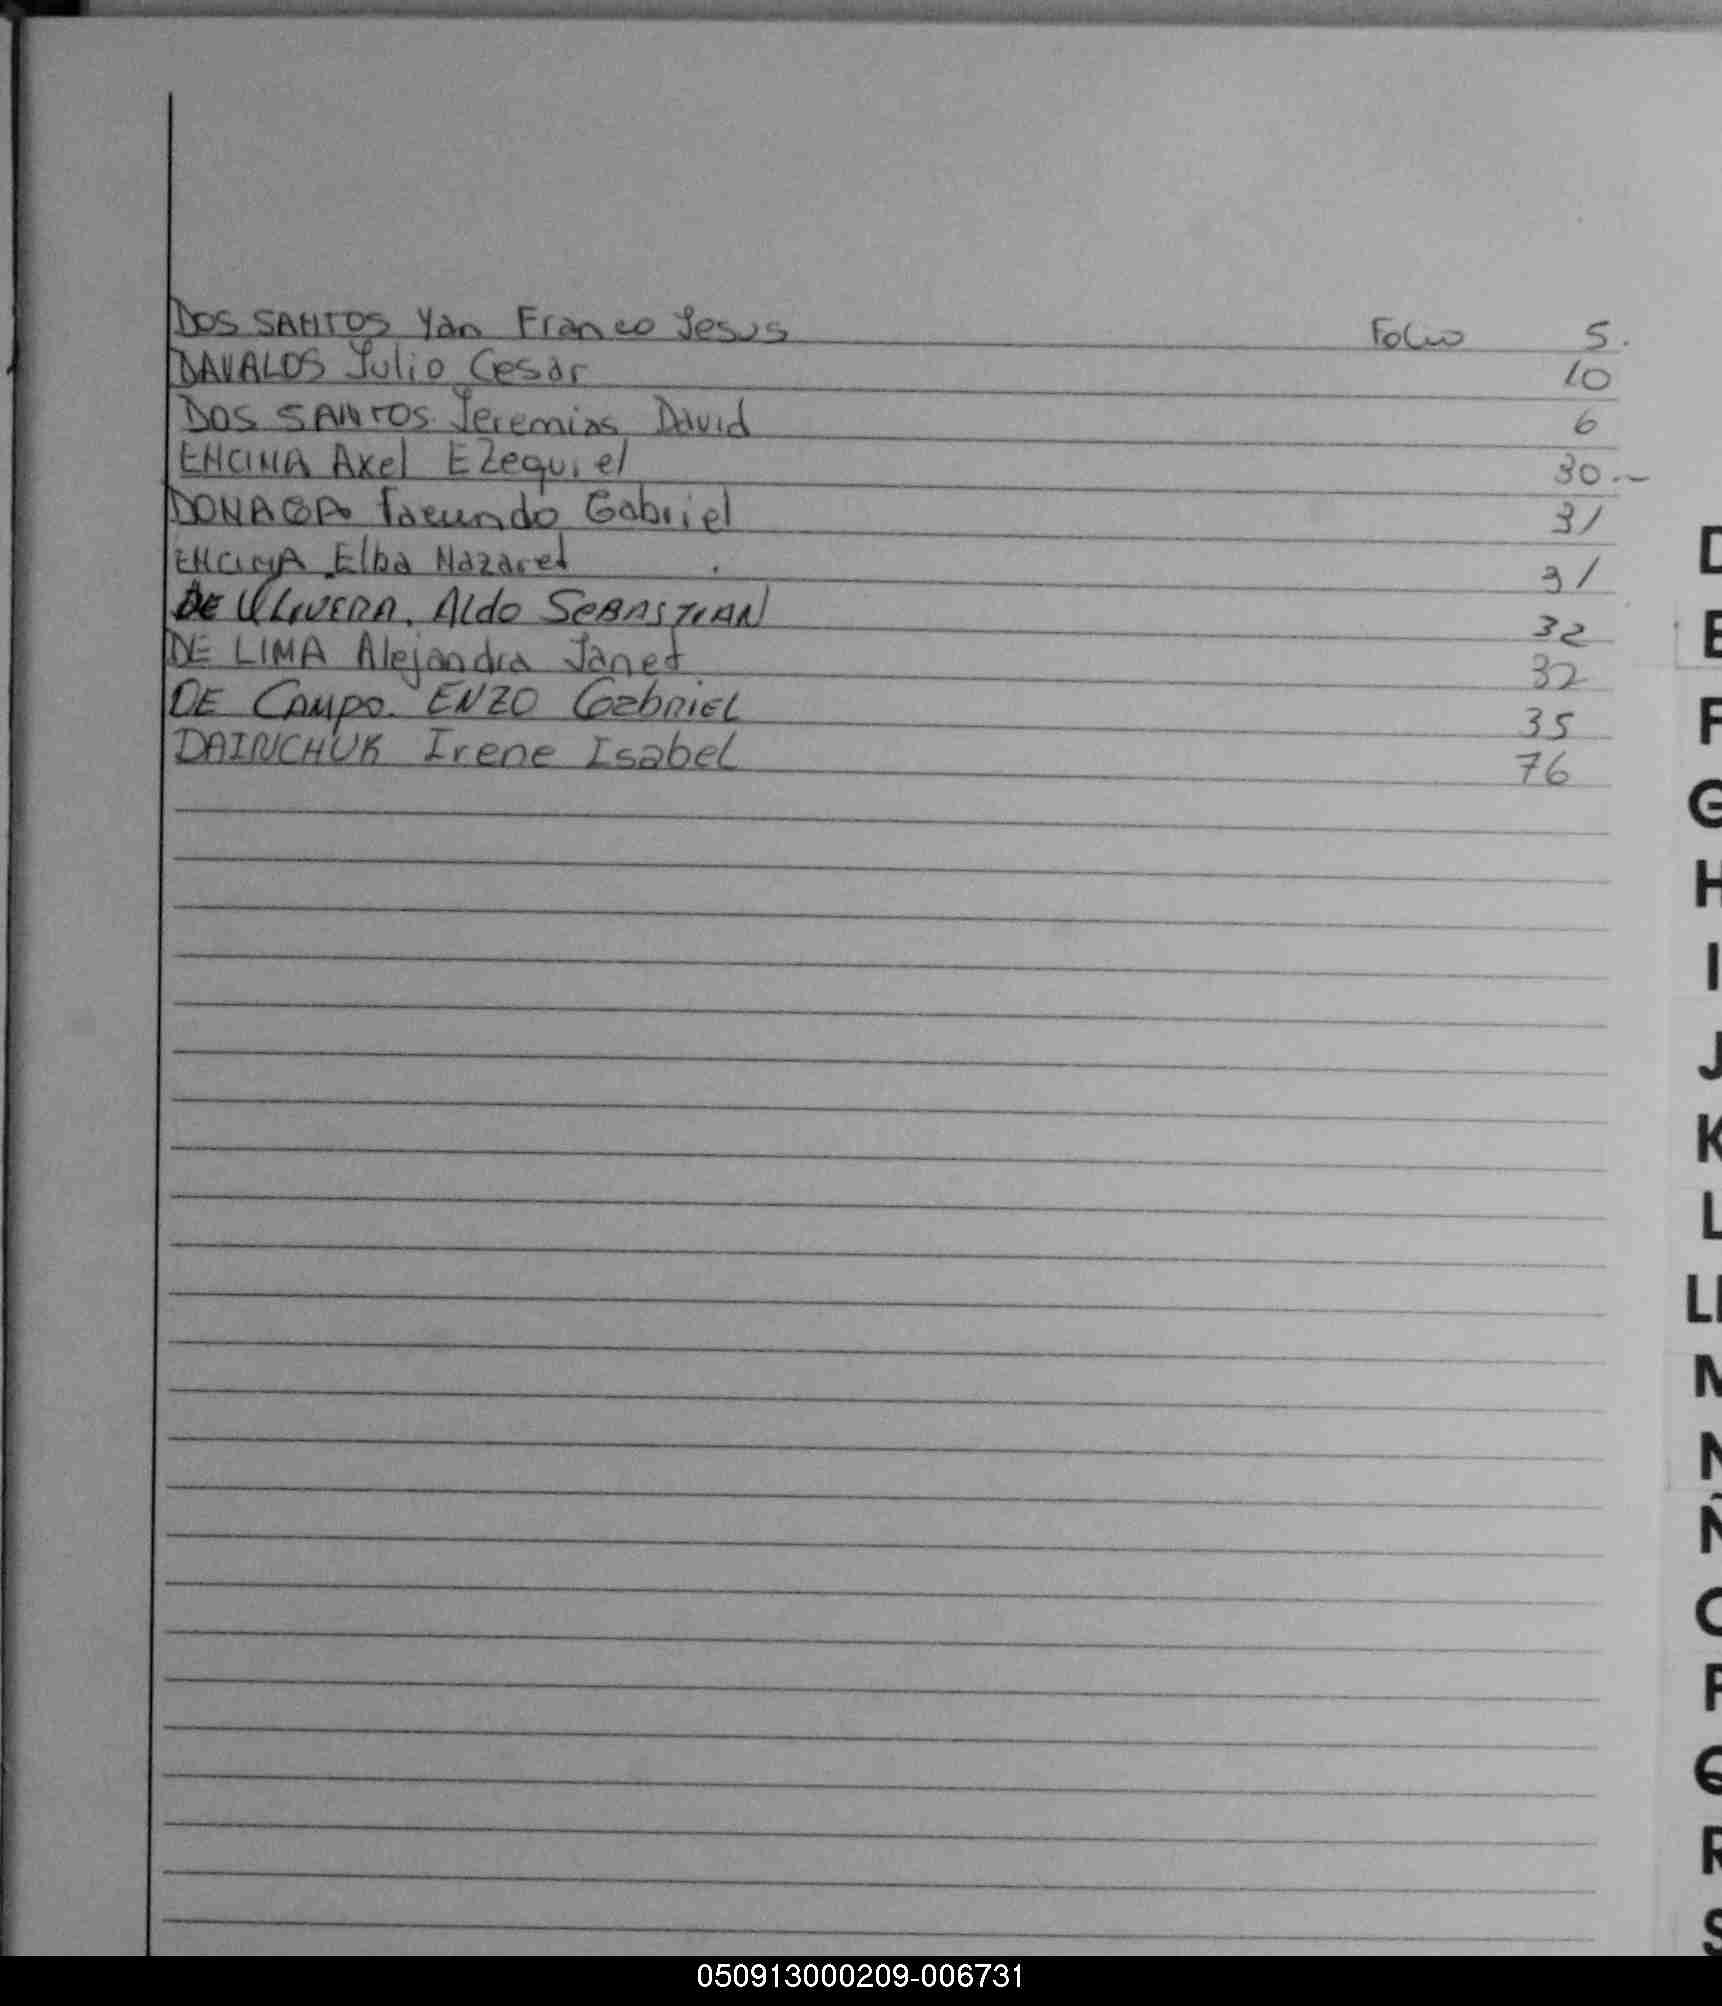 DOS SANTOS Yan Franco Jesus Folio 5.
DAVALOS Julio Cesar 10
DOS SANTOS Jeremias David 6
ENCINA Axel Ezequiel 30.-
Facundo Gabriel 31
ENCINA Elba Nazaret 31
DE OLIVERA. Aldo SEBASTIAN 32
DE LIMA Alejandra Janet 32
DE CAMPO. ENZO Gabriel 35
DAINCHUK Irene Isabel 76
D
E
F
G
H
I
J
K
L
Ll
M
N
Ñ
O
P
Q
R
S
050913000209-006731